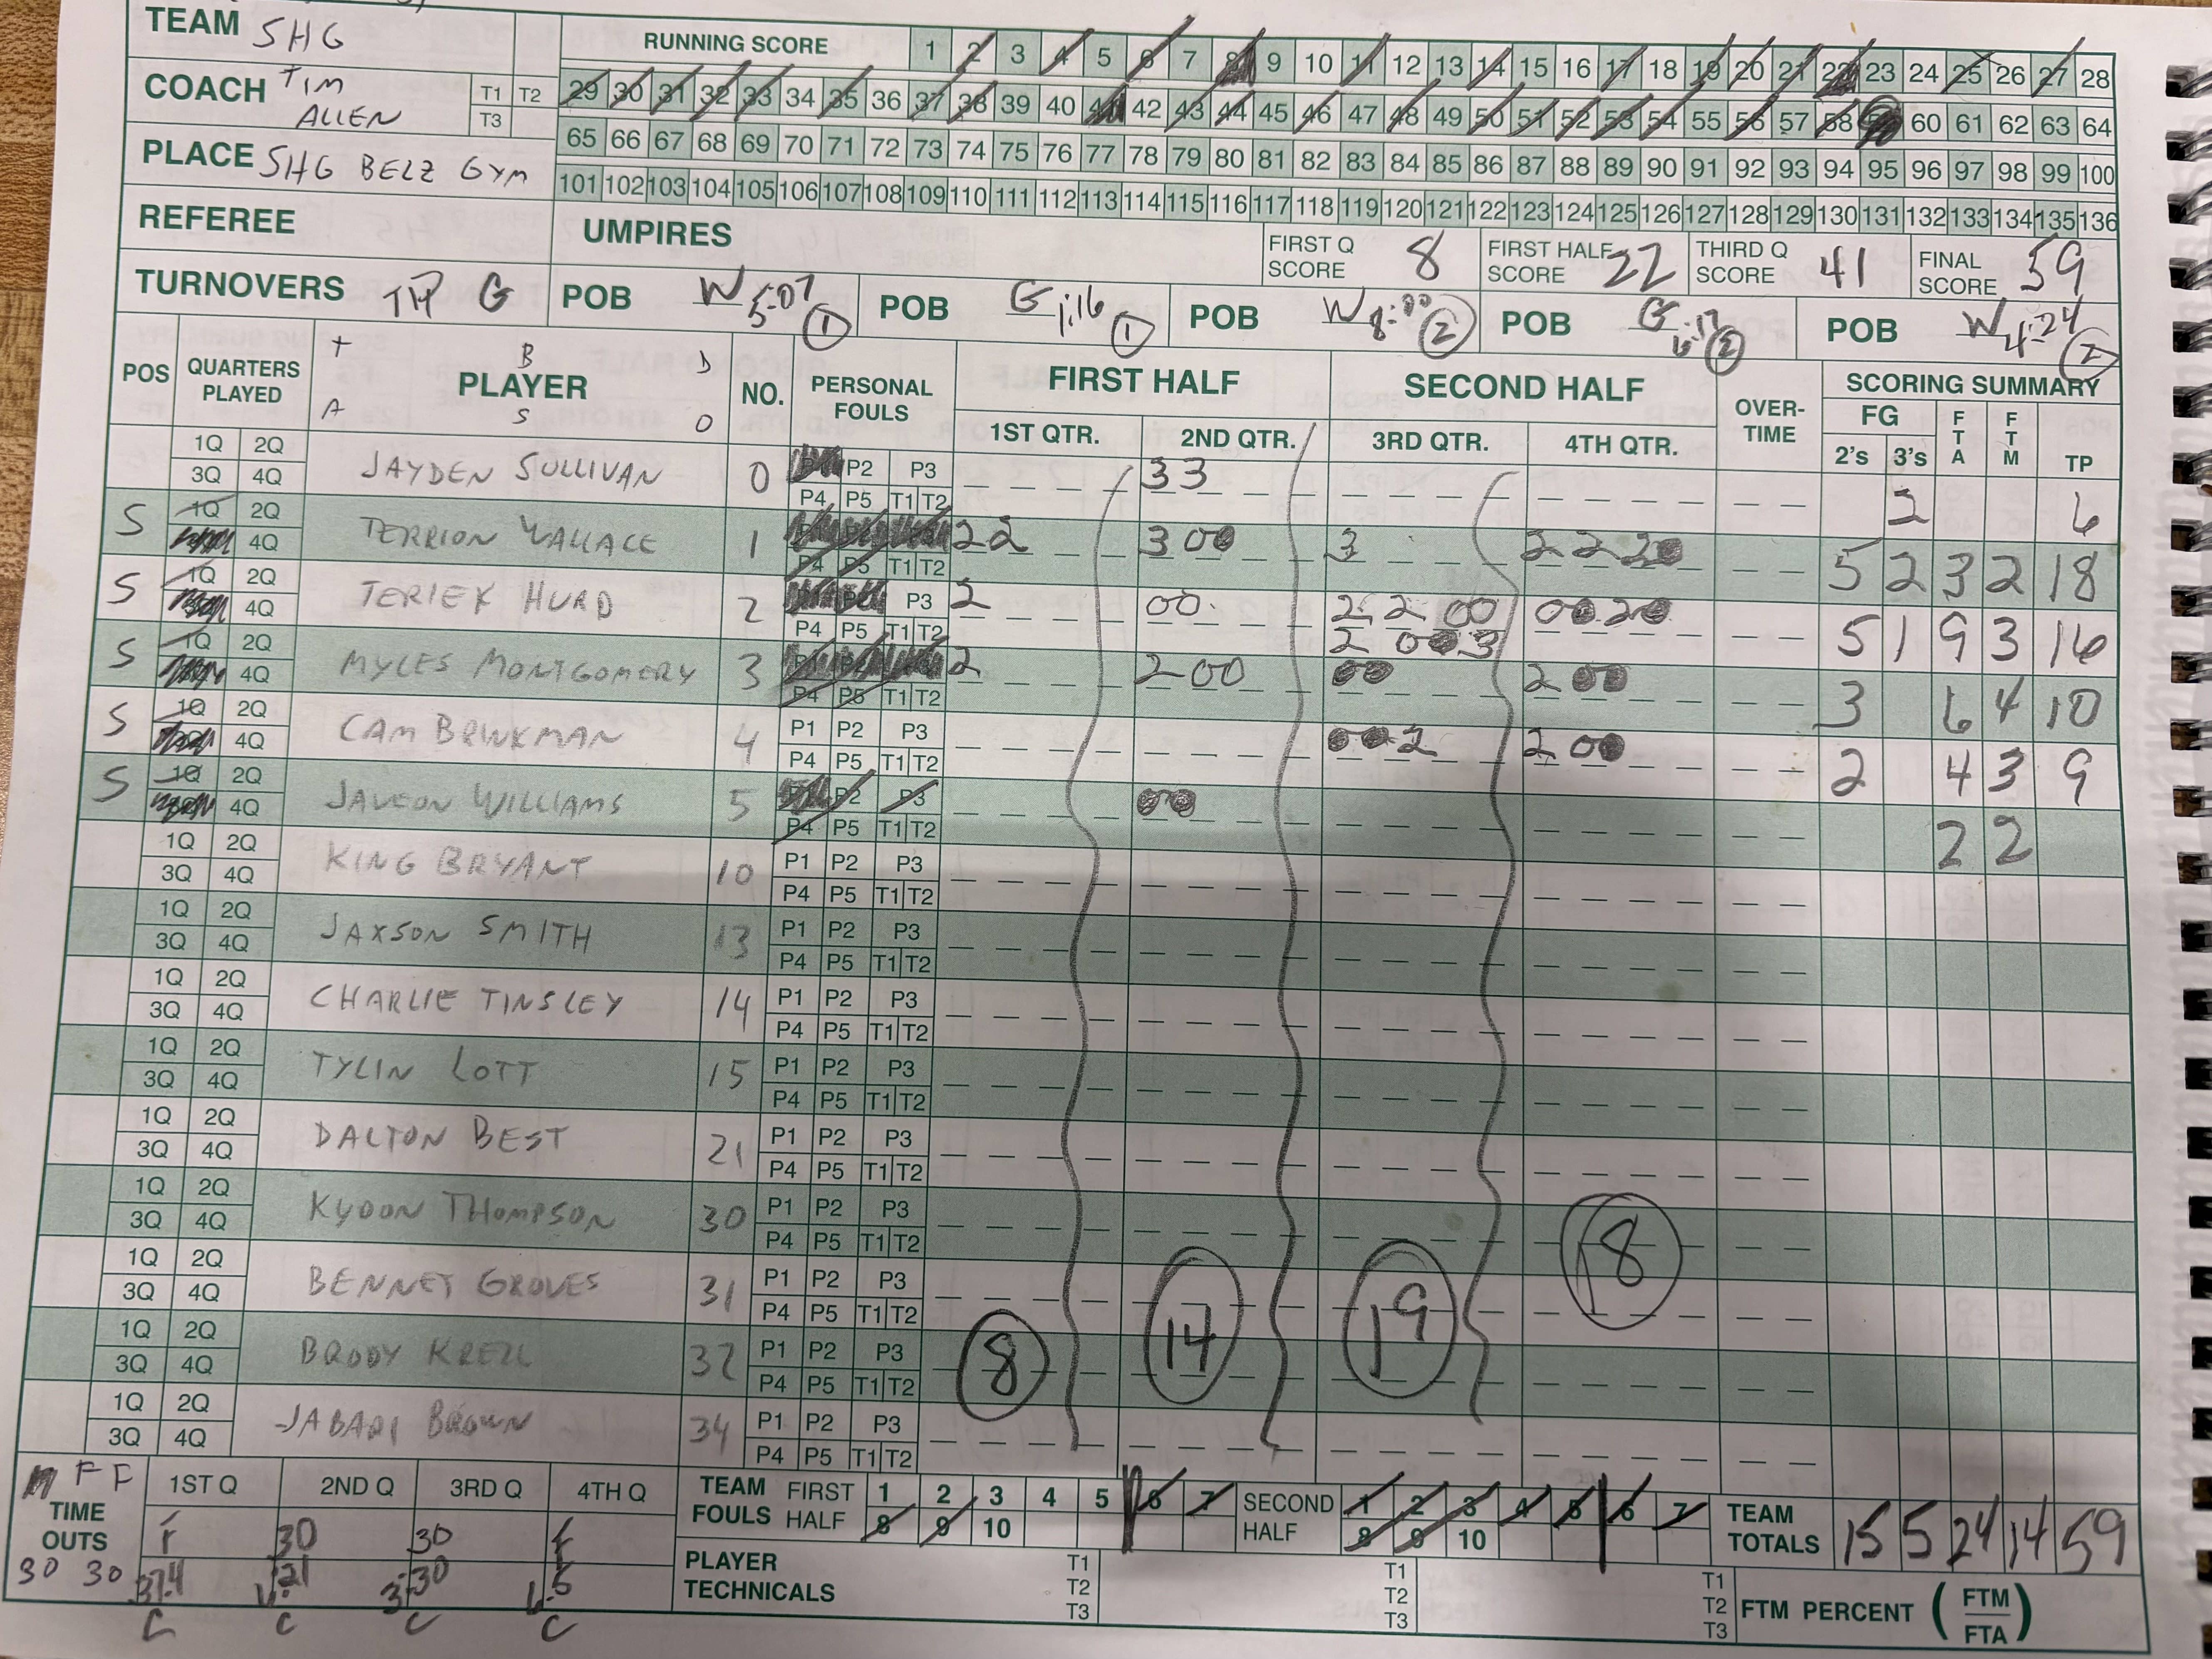 TEAM SHG
RUNNING SCORE 1 2 3 4 5 6 7 8 9 10 11 12 13 14 15 16 17 18 19 20 21 22 23 24 25 26 27 28
COACH TIM ALLEN T1 T2 T3
29 30 31 32 33 34 35 36 37 38 39 40 41 42 43 44 45 46 47 48 49 50 51 52 53 54 55 56 57 58 59 60 61 62 63 64
65 66 67 68 69 70 71 72 73 74 75 76 77 78 79 80 81 82 83 84 85 86 87 88 89 90 91 92 93 94 95 96 97 98 99 100
101 102 103 104 105 106 107 108 109 110 111 112 113 114 115 116 117 118 119 120 121 122 123 124 125 126 127 128 129 130 131 132 133 134 135 136
PLACE SHG BELZ GYM
REFEREE UMPIRES FIRST Q SCORE 8 FIRST HALF SCORE 22 THIRD Q SCORE 41 FINAL SCORE 59
TURNOVERS TIP G POB W 5:07 1 POB G 1:16 1 POB W 8:00 2 POB G 6:17 2 POB W 4:24 2
POS QUARTERS PLAYED T A PLAYER B S D O NO. PERSONAL FOULS FIRST HALF SECOND HALF OVER-TIME SCORING SUMMARY
1ST QTR. 2ND QTR. 3RD QTR. 4TH QTR. FG 2's 3's FTA FTM TP
1Q 2Q 3Q 4Q JAYDEN SULLIVAN 0 P2 P3 P4 P5 T1 T2 33 2 6
S 1Q 2Q 4Q TERRION WALLACE 1 P4 P5 T1 T2 22 300 3 2220 5 2 3 2 18
S 1Q 2Q 4Q TERIEK HURD 2 P3 P4 P5 T1 T2 2 00 2 2 00 2 0003 00020 5 1 9 3 16
S 1Q 2Q 4Q MYLES MONTGOMERY 3 P4 P5 T1 T2 2 200 00 200 3 6 4 10
S 1Q 2Q 4Q CAM BRINKMAN 4 P1 P2 P3 P4 P5 T1 T2 002 200 2 4 3 9
S 1Q 2Q 4Q JAVEON WILLIAMS 5 P2 P3 P4 P5 T1 T2 00 2 2
1Q 2Q 3Q 4Q KING BRYANT 10 P1 P2 P3 P4 P5 T1 T2
1Q 2Q 3Q 4Q JAXSON SMITH 13 P1 P2 P3 P4 P5 T1 T2
1Q 2Q 3Q 4Q CHARLIE TINSLEY 14 P1 P2 P3 P4 P5 T1 T2
1Q 2Q 3Q 4Q TYLIN LOTT 15 P1 P2 P3 P4 P5 T1 T2
1Q 2Q 3Q 4Q DALTON BEST 21 P1 P2 P3 P4 P5 T1 T2
1Q 2Q 3Q 4Q KYDON THOMPSON 30 P1 P2 P3 P4 P5 T1 T2
1Q 2Q 3Q 4Q BENNET GROVES 31 P1 P2 P3 P4 P5 T1 T2
1Q 2Q 3Q 4Q BRODY KREZL 32 P1 P2 P3 P4 P5 T1 T2
8 14 19 18
1Q 2Q 3Q 4Q JABARI BROWN 34 P1 P2 P3 P4 P5 T1 T2
F F 1ST Q 2ND Q 3RD Q 4TH Q TEAM FOULS FIRST HALF 1 2 3 4 5 6 7 8 9 10 SECOND HALF 1 2 3 4 5 6 7 8 9 10 TEAM TOTALS 15 5 24 14 59
TIME OUTS F 30 30 F
30 30 37.4 :21 3:30
C C C C
PLAYER TECHNICALS T1 T2 T3 T1 T2 T3 T1 T2 T3 FTM PERCENT ( FTM FTA )